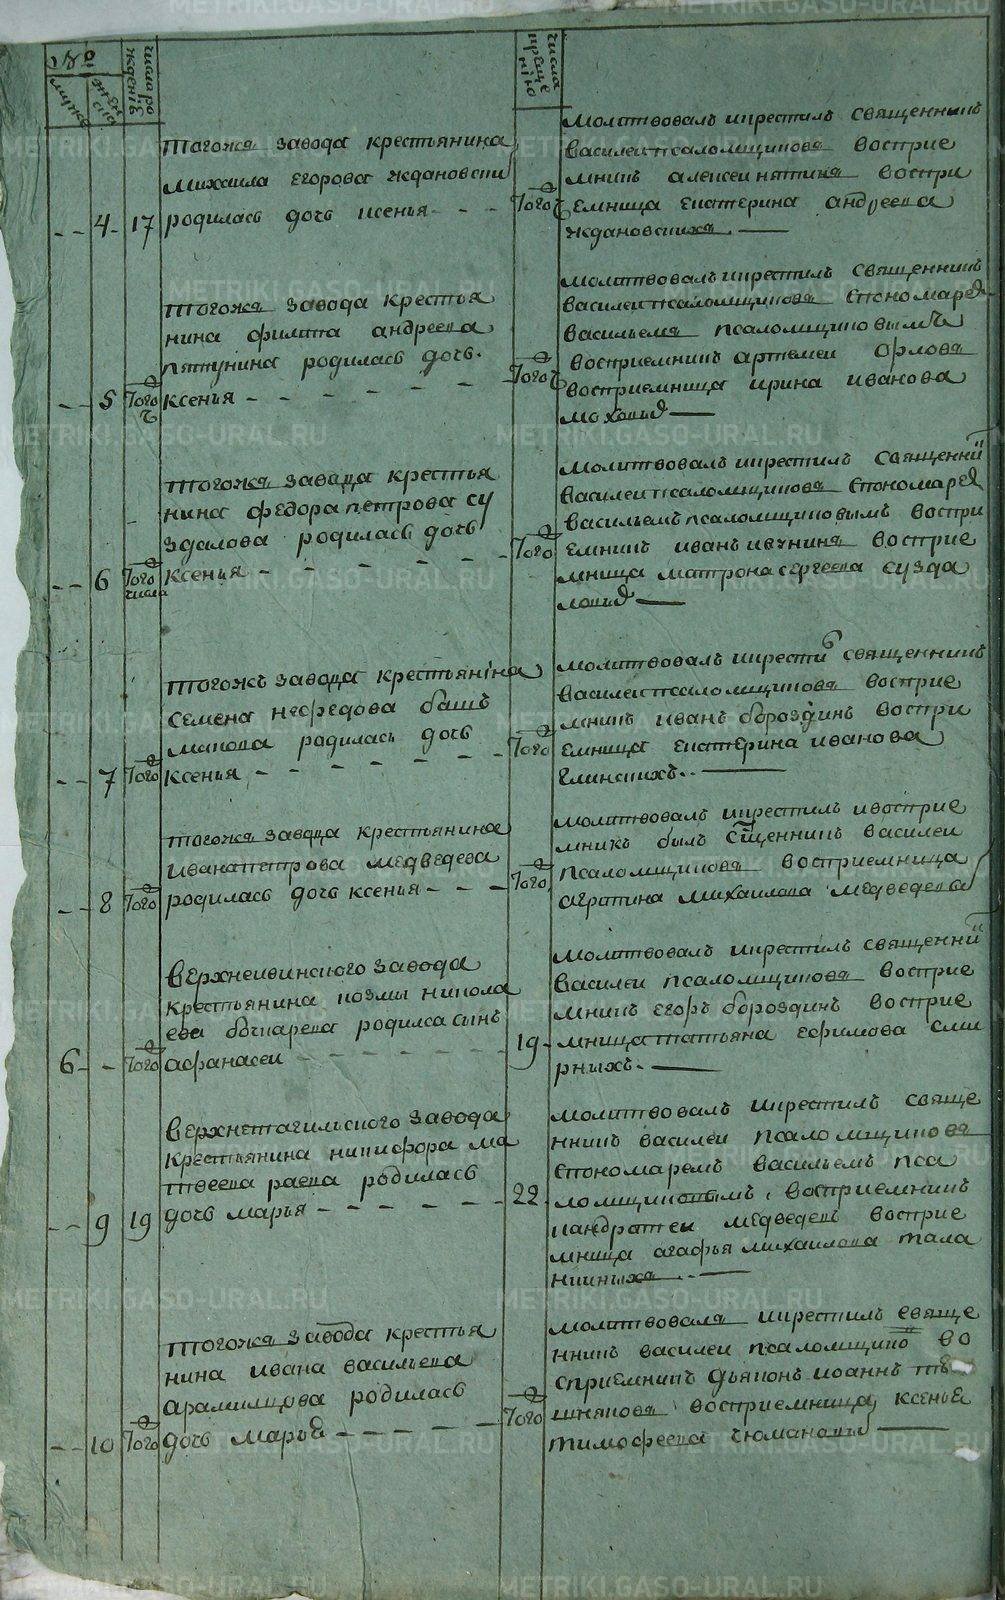 №
мужска
женска
числа ро
жденiя
числа
креще
нiю
4 17
тогожъ завода крестьянина
михаила егорова ждановски
родилась дочь ксенья
того ч
молитвовалъ икрестилъ священникъ
василеи псаломщиковъ восприе
мникъ алексеи пяткинъ воспри
емница екатерина андреева
ждановскихъ
5 того ч
тогожъ завода крестья
нина филипа андреева
пятунина родилась дочь
ксенья
того ч
молитвовалъ икрестилъ священникъ
василеи псаломщиковъ спономаремъ
васильемъ псаломщиковымъ
восприемникъ артемеи орловъ
восприемница ирина иванова
6 того числа
тогожъ завода крестья
нина федора петрова су
здалова родилась дочь
ксенья
того
молитвовалъ икрестилъ священни
василеи псаломщиковъ спономаремъ
васильемъ псаломщиковымъ воспри
емникъ иванъ восприе
мница матрона сергеева сузда
ловыхъ
7 того
тогожъ завода крестьянiна
семена нефедова башъ
макова родилась дочь
ксенья
того
молитвовалъ икрестилъ священникъ
василеи псаломщиковъ восприе
мникъ иванъ бороздинъ воспри
емница екатерина иванова
глинскихъ
8 того
тогожъ завода крестьянина
ивана петрова медведева
родилась дочь ксенья
того
молитвовалъ икрестилъ ивосприе
мникъ былъ сщенникъ василеи
псаломщиковъ восприемница
агрипина михаилова медведевы
6 того
верхнеивинского завода
крестьянина козмы никола
ева бочкарева родился сынъ
афанасеи
19
молитвовалъ икрестилъ священни
василеи псаломщиковъ восприе
мникъ егоръ бороздинъ восприе
мница татьяна ефимова сми
рныхъ
9 19
верхнетагильского завода
крестьянина никифора ма
твеева раева родилась
дочь марья
22
молитвовалъ икрестилъ свяще
нникъ василеи псаломщиковъ
спономаремъ васильемъ пса
ломщиковымъ восприемникъ
кандратеи медведевъ восприе
мница агафья михаилова тала
нкиныхъ
10 того
тогожъ завода крестья
нина ивана васильева
арамилцова родилась
дочь марья
того
молитвовалъ икрестилъ свяще
нникъ василеи псаломщико во
сприемникъ дьяконъ иоаннъ
восприемница ксенья
тимофеева чюмановы
METRIKI.GASO-URAL.RU